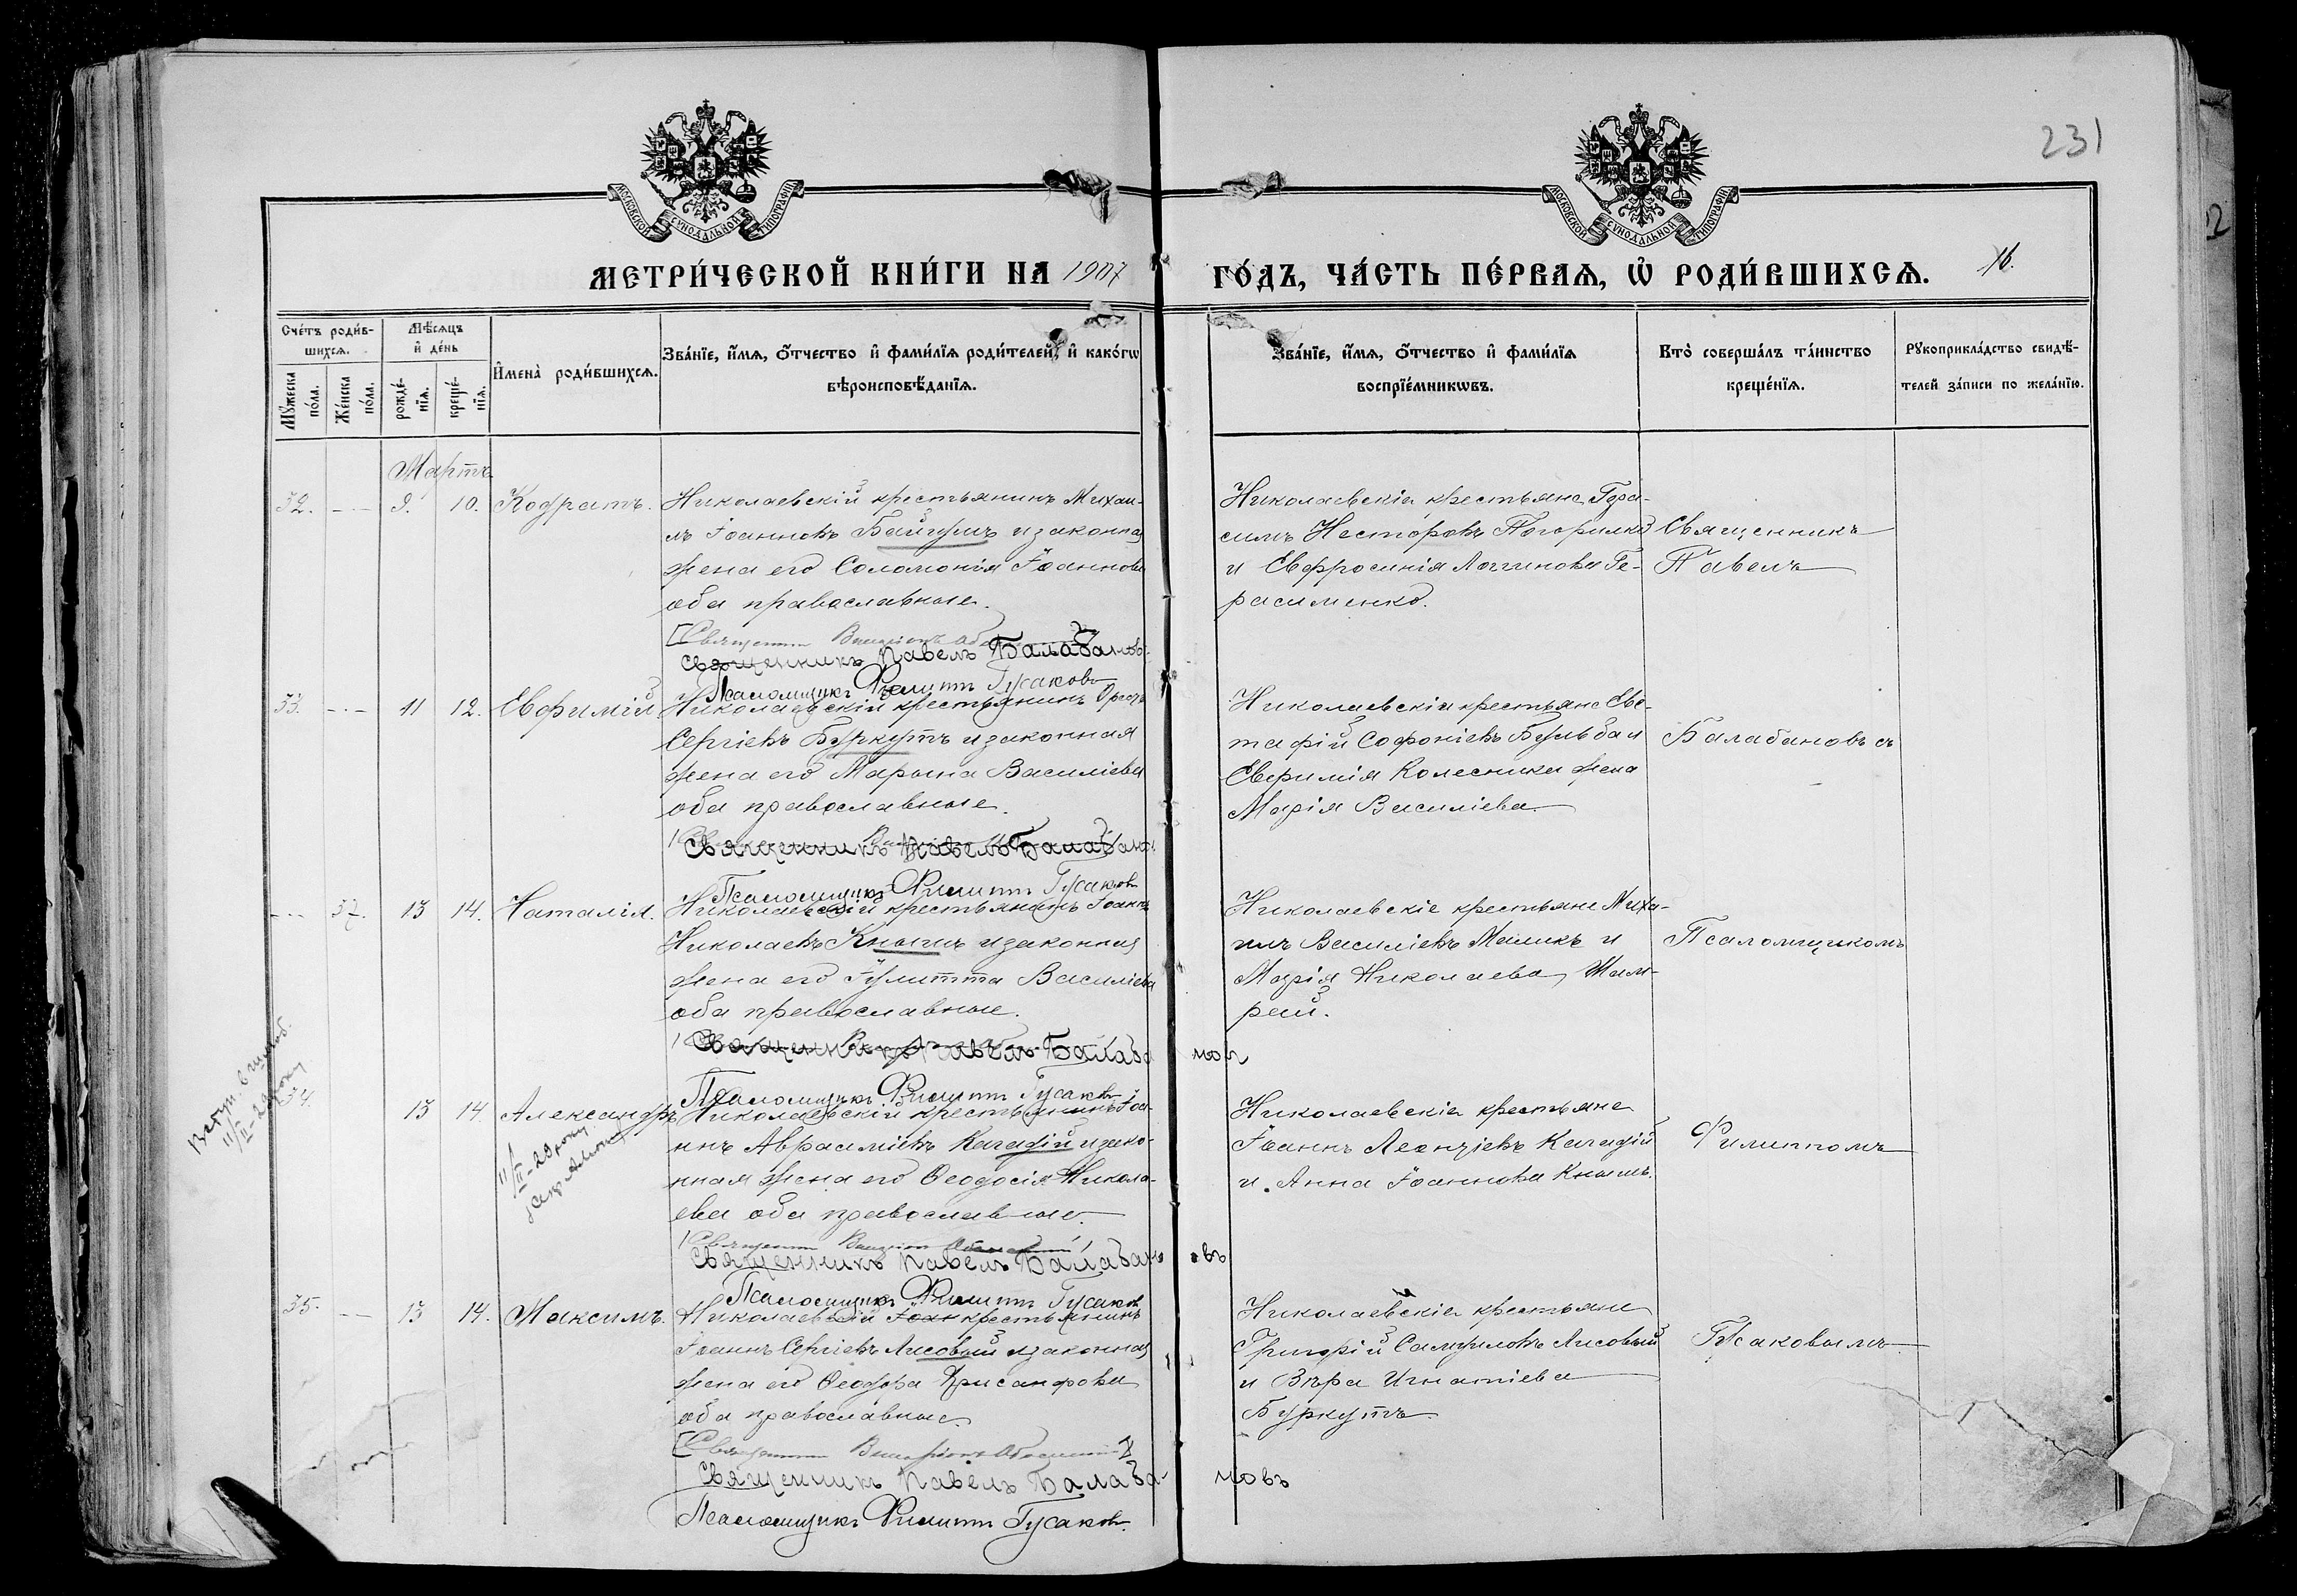 231
МОСКОВСКОЙ СѴНОДАЛЬНОЙ ТИПОГРАФІИ
МОСКОВСКОЙ СѴНОДАЛЬНОЙ ТИПОГРАФІИ
МЕТРИ́ЧЕСКОЙ КНИ́ГИ НА 1907
ГО́ДЪ, ЧА́СТЬ ПЕ́РВАЯ, Ѡ РОДИ́ВШИХСѦ.
16.
Сче́тъ роди́в-
шихсѧ.
Мѣ́сѧцъ
и҆ де́нь
Мꙋ́жеска
по́ла.
Же́нска
по́ла.
рожде́-
нїѧ.
креще́-
нїѧ.
И҆мена̀ роди́вшихсѧ.
Зва́нїе, и҆́мѧ, ѻ҆́тчество и҆ фами́лїѧ роди́телей, и҆ како́гѡ
вѣроисповѣ́данїѧ.
Зва́нїе, и҆́мѧ, ѻ҆́тчество и҆ фами́лїѧ
воспрїе́мникѡвъ.
Кто̀ соверша́лъ та́инство
креще́нїѧ.
Рꙋкоприкла́дство свидѣ́-
телей за́писи по жела́нїю.
Мартъ
32. — 9. 10. Кодратъ.
Николаевскій крестьянинъ Михаи-
лъ Іоанновъ Байгушъ и законная
жена его Соломонія Іоаннова
оба православные.
Священникъ Павелъ Балабановъ
Псаломщикъ Филиппъ Гусаковъ
Николаевскіе крестьяне Гера-
симъ Несторовъ Погорилко
и Евфросинія Логгинова Ге-
расименко.
Священникъ
Павелъ
33. — 11 12. Евфимій
Николаевскій крестьянинъ
Сергіевъ Буркутъ и законная
жена его Марѳина Василіева
оба православные.
Священникъ Павелъ Балабановъ
Псаломщикъ Филиппъ Гусаковъ
Николаевскіе крестьяне Евс-
тафій Софоніевъ Бульба и
Евфимія Колесника жена
Марія Василіева
Балабановъ съ
— 37. 13 14. Наталія.
Николаевскій крестьянинъ Іоаннъ
Николаевъ Кнышъ и законная
жена его Іулитта Василіева
оба православные.
Священникъ Павелъ Балабановъ
Псаломщикъ Филиппъ Гусаковъ
Николаевскіе крестьяне Миха-
илъ Василіевъ Машикъ и
Марія Николаева Шам-
рай.
Псаломщикомъ
34. 13 14 Александръ
Николаевскій крестьянинъ Іоа-
ннъ Аврааміевъ Кагадій и зако-
нная жена его Ѳеодосія Никола-
ева оба православные.
Священникъ Павелъ Балабановъ
Псаломщикъ Филиппъ Гусаковъ
Николаевскіе крестьяне
Іоаннъ Леонтіевъ Кагадій
и Анна Іоаннова Кнышъ.
Филиппомъ
35. — 13 14. Максимъ.
Николаевскій крестьянинъ
Іоаннъ Сергіевъ Лисовый и законная
жена его Ѳеодора Хрисанфова
оба православные.
Священникъ Павелъ Балабановъ
Псаломщикъ Филиппъ Гусаковъ.
Николаевскіе крестьяне
Григорій Самуиловъ Лисовый
и Вѣра Игнатіева
Буркутъ
Гусаковымъ